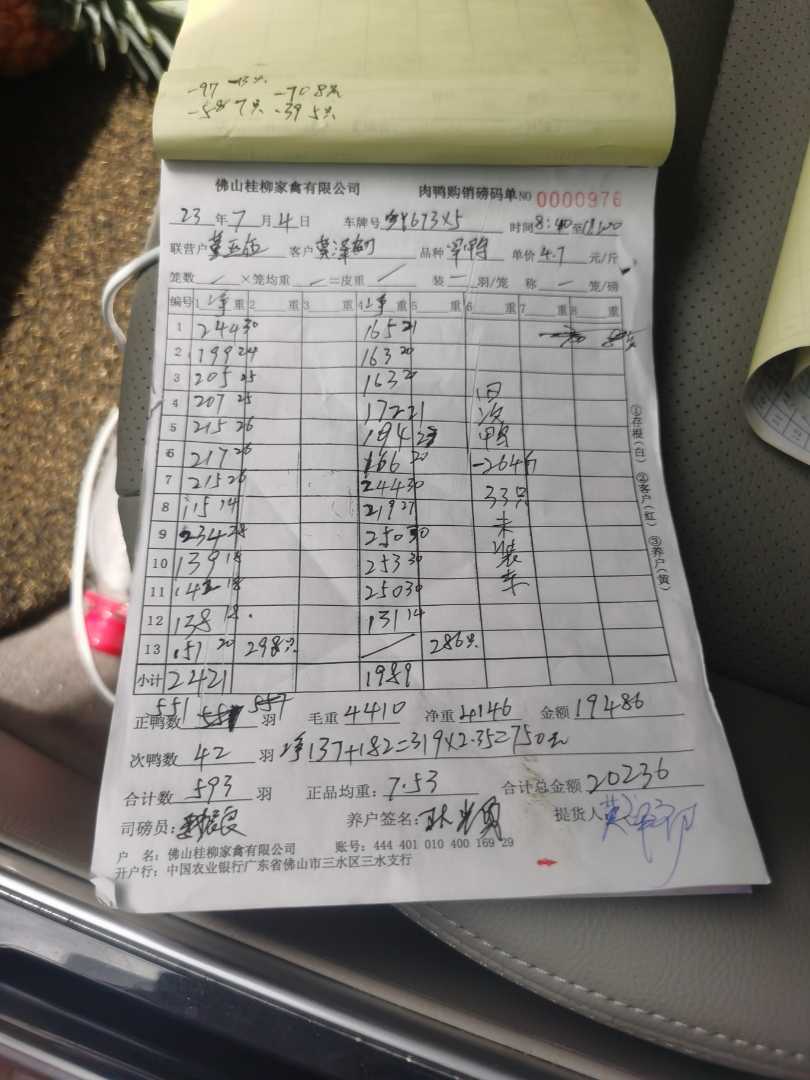 -97 -13只 -70 8只
-58 7只 -39 5只
佛山桂柳家禽有限公司 肉鸭购销磅码单 NO 0000976
23 年 7 月 4 日 车牌号 673X5 时间 8:40 至
联营户 客户 黄泽 品种 单价 4.7 元/斤
笼数 — ×笼均重 — =皮重 / 装 — 羽/笼 称 — 笼/磅
编号 1 净重 2 重 3 重 4 净重 5 重 6 重 7 重 8 重
1 244 30 165 21
2 199 24 163 20
3 205 25 163 20
4 207 25 172 21
5 215 26 194 23
6 217 26 166 20
7 215 26 244 30
8 115 14 219 27
9 234 28 250 30
10 139 18 253 30
11 142 18 250 30
12 138 18 131 14
13 151 20 298只 / 286只
小计 2421 1989
次鸭
-264斤
33只
未
装
车
①存根(白) ②客户(红) ③养户(黄)
正鸭数 551 羽 毛重 4410 净重 4146 金额 19486
次鸭数 42 羽 净137+182=319×2.35=750元
合计数 593 羽 正品均重: 7.53 合计总金额 20236
司磅员: 养户签名: 提货人
户 名: 佛山桂柳家禽有限公司 账号: 444 401 010 400 169 29
开户行: 中国农业银行广东省佛山市三水区三水支行